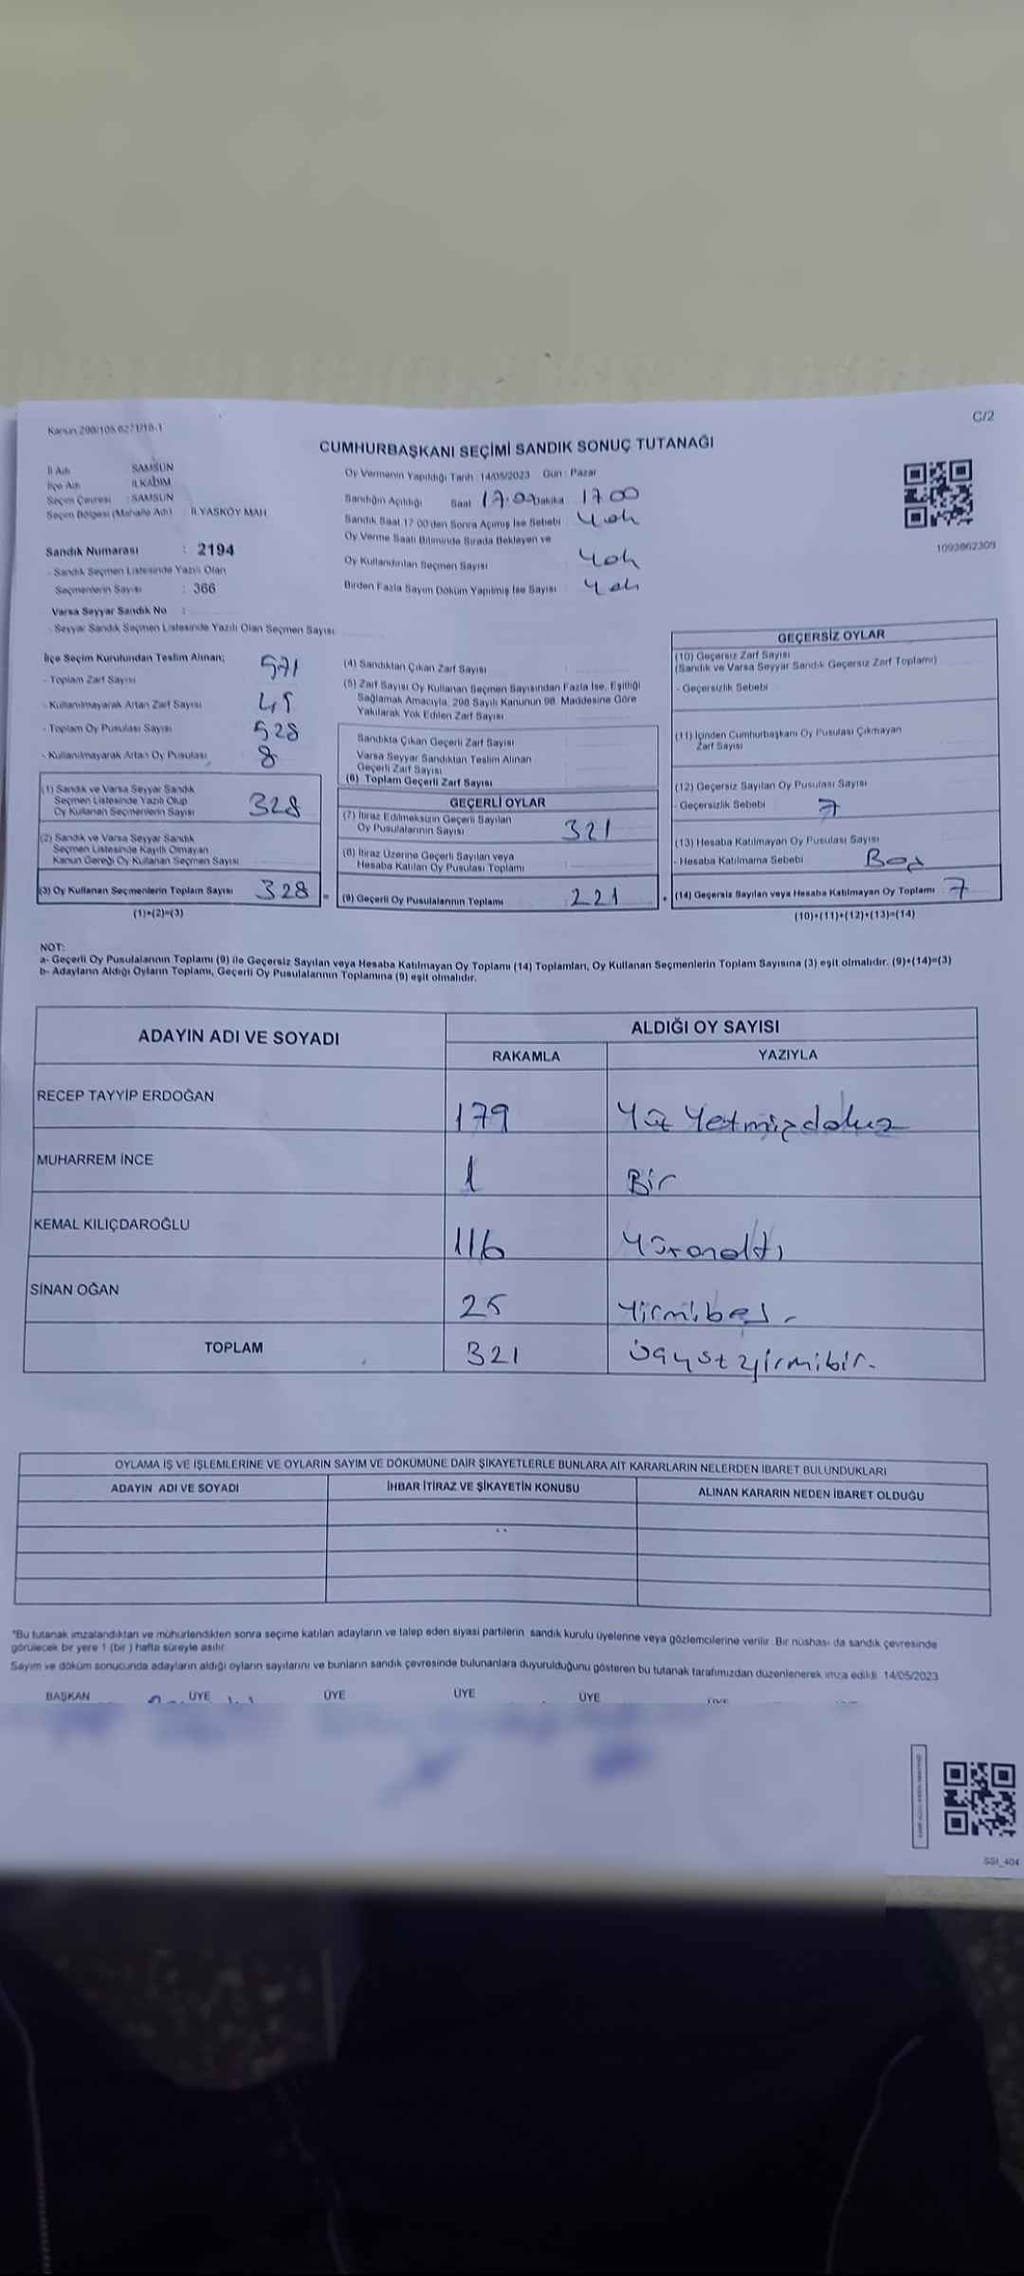 C/2
CUMHURBAŞKANI SEÇİMİ SANDIK SONUÇ TUTANAĞI
İl Adı SAMSUN
İlçe Adı İLKADIM
Seçim Çevresi : SAMSUN
Seçim Bölgesi (Mahalle Adı) : İLYASKÖY MAH
Sandık Numarası : 2194
- Sandık Seçmen Listesinde Yazılı Olan
Seçmenlerin Sayısı : 366
Varsa Seyyar Sandık No :
- Seyyar Sandık Seçmen Listesinde Yazılı Olan Seçmen Sayısı
Oy Vermenin Yapıldığı Tarih : 14/05/2023 Gün : Pazar
Sandığın Açıldığı Saat 17.00 Dakika 1700
Sandık Saat 17.00'den Sonra Açımış İse Sebebi Yok
Oy Verme Saati Bitiminde Sırada Bekleyen ve
Oy Kullandırılan Seçmen Sayısı Yok
Birden Fazla Sayım Döküm Yapılmış İse Sayısı : Yok
1093862309
İlçe Seçim Kurulundan Teslim Alınan;
- Toplam Zarf Sayısı 571
- Kullanılmayarak Artan Zarf Sayısı
- Toplam Oy Pusulası Sayısı 528
- Kullanılmayarak Artan Oy Pusulası 8
(1) Sandık ve Varsa Seyyar Sandık
Seçmen Listesinde Yazılı Olup
Oy Kullanan Seçmenlerin Sayısı 328
(2) Sandık ve Varsa Seyyar Sandık
Seçmen Listesinde Kayıtlı Olmayan
Kanun Gereği Oy Kullanan Seçmen Sayısı
(3) Oy Kullanan Seçmenlerin Toplam Sayısı 328
(1)+(2)=(3)
(4) Sandıktan Çıkan Zarf Sayısı
(5) Zarf Sayısı Oy Kullanan Seçmen Sayısından Fazla İse, Eşitliği
Sağlamak Amacıyla, 298 Sayılı Kanunun 98. Maddesine Göre
Yakılarak Yok Edilen Zarf Sayısı
Sandıkta Çıkan Geçerli Zarf Sayısı
Varsa Seyyar Sandıktan Teslim Alınan
Geçerli Zarf Sayısı
(6) Toplam Geçerli Zarf Sayısı
GEÇERLİ OYLAR
(7) İtiraz Edilmeksizin Geçerli Sayılan
Oy Pusulalarının Sayısı 321
(8) İtiraz Üzerine Geçerli Sayılan veya
Hesaba Katılan Oy Pusulası Toplamı
(9) Geçerli Oy Pusulalarının Toplamı 221
GEÇERSİZ OYLAR
(10) Geçersiz Zarf Sayısı
(Sandık ve Varsa Seyyar Sandık Geçersiz Zarf Toplamı)
- Geçersizlik Sebebi
(11) İçinden Cumhurbaşkanı Oy Pusulası Çıkmayan
Zarf Sayısı
(12) Geçersiz Sayılan Oy Pusulası Sayısı
- Geçersizlik Sebebi 7
(13) Hesaba Katılmayan Oy Pusulası Sayısı
- Hesaba Katılmama Sebebi Boş
(14) Geçersiz Sayılan veya Hesaba Katılmayan Oy Toplamı 7
(10)+(11)+(12)+(13)=(14)
NOT:
a- Geçerli Oy Pusulalarının Toplamı (9) ile Geçersiz Sayılan veya Hesaba Katılmayan Oy Toplamı (14) Toplamları, Oy Kullanan Seçmenlerin Toplam Sayısına (3) eşit olmalıdır. (9)+(14)=(3)
b- Adayların Aldığı Oyların Toplamı, Geçerli Oy Pusulalarının Toplamına (9) eşit olmalıdır.
ADAYIN ADI VE SOYADI
ALDIĞI OY SAYISI
RAKAMLA YAZIYLA
RECEP TAYYİP ERDOĞAN 179 Yüz Yetmişdokuz
MUHARREM İNCE 1 Bir
KEMAL KILIÇDAROĞLU 116 Yüzonaltı
SİNAN OĞAN 25 Yirmibeş
TOPLAM 321 üçyüzyirmibir.
OYLAMA İŞ VE İŞLEMLERİNE VE OYLARIN SAYIM VE DÖKÜMÜNE DAİR ŞİKAYETLERLE BUNLARA AİT KARARLARIN NELERDEN İBARET BULUNDUKLARI
ADAYIN ADI VE SOYADI İHBAR İTİRAZ VE ŞİKAYETİN KONUSU ALINAN KARARIN NEDEN İBARET OLDUĞU
*Bu tutanak imzalandıktan ve mühürlendikten sonra seçime katılan adayların ve talep eden siyasi partilerin sandık kurulu üyelerine veya gözlemcilerine verilir. Bir nüshası da sandık çevresinde
görülecek bir yere 1 (bir ) hafta süreyle asılır.
Sayım ve döküm sonucunda adayların aldığı oyların sayılarını ve bunların sandık çevresinde bulunanlara duyurulduğunu gösteren bu tutanak tarafımızdan düzenlenerek imza edildi. 14/05/2023
BAŞKAN ÜYE ÜYE ÜYE ÜYE